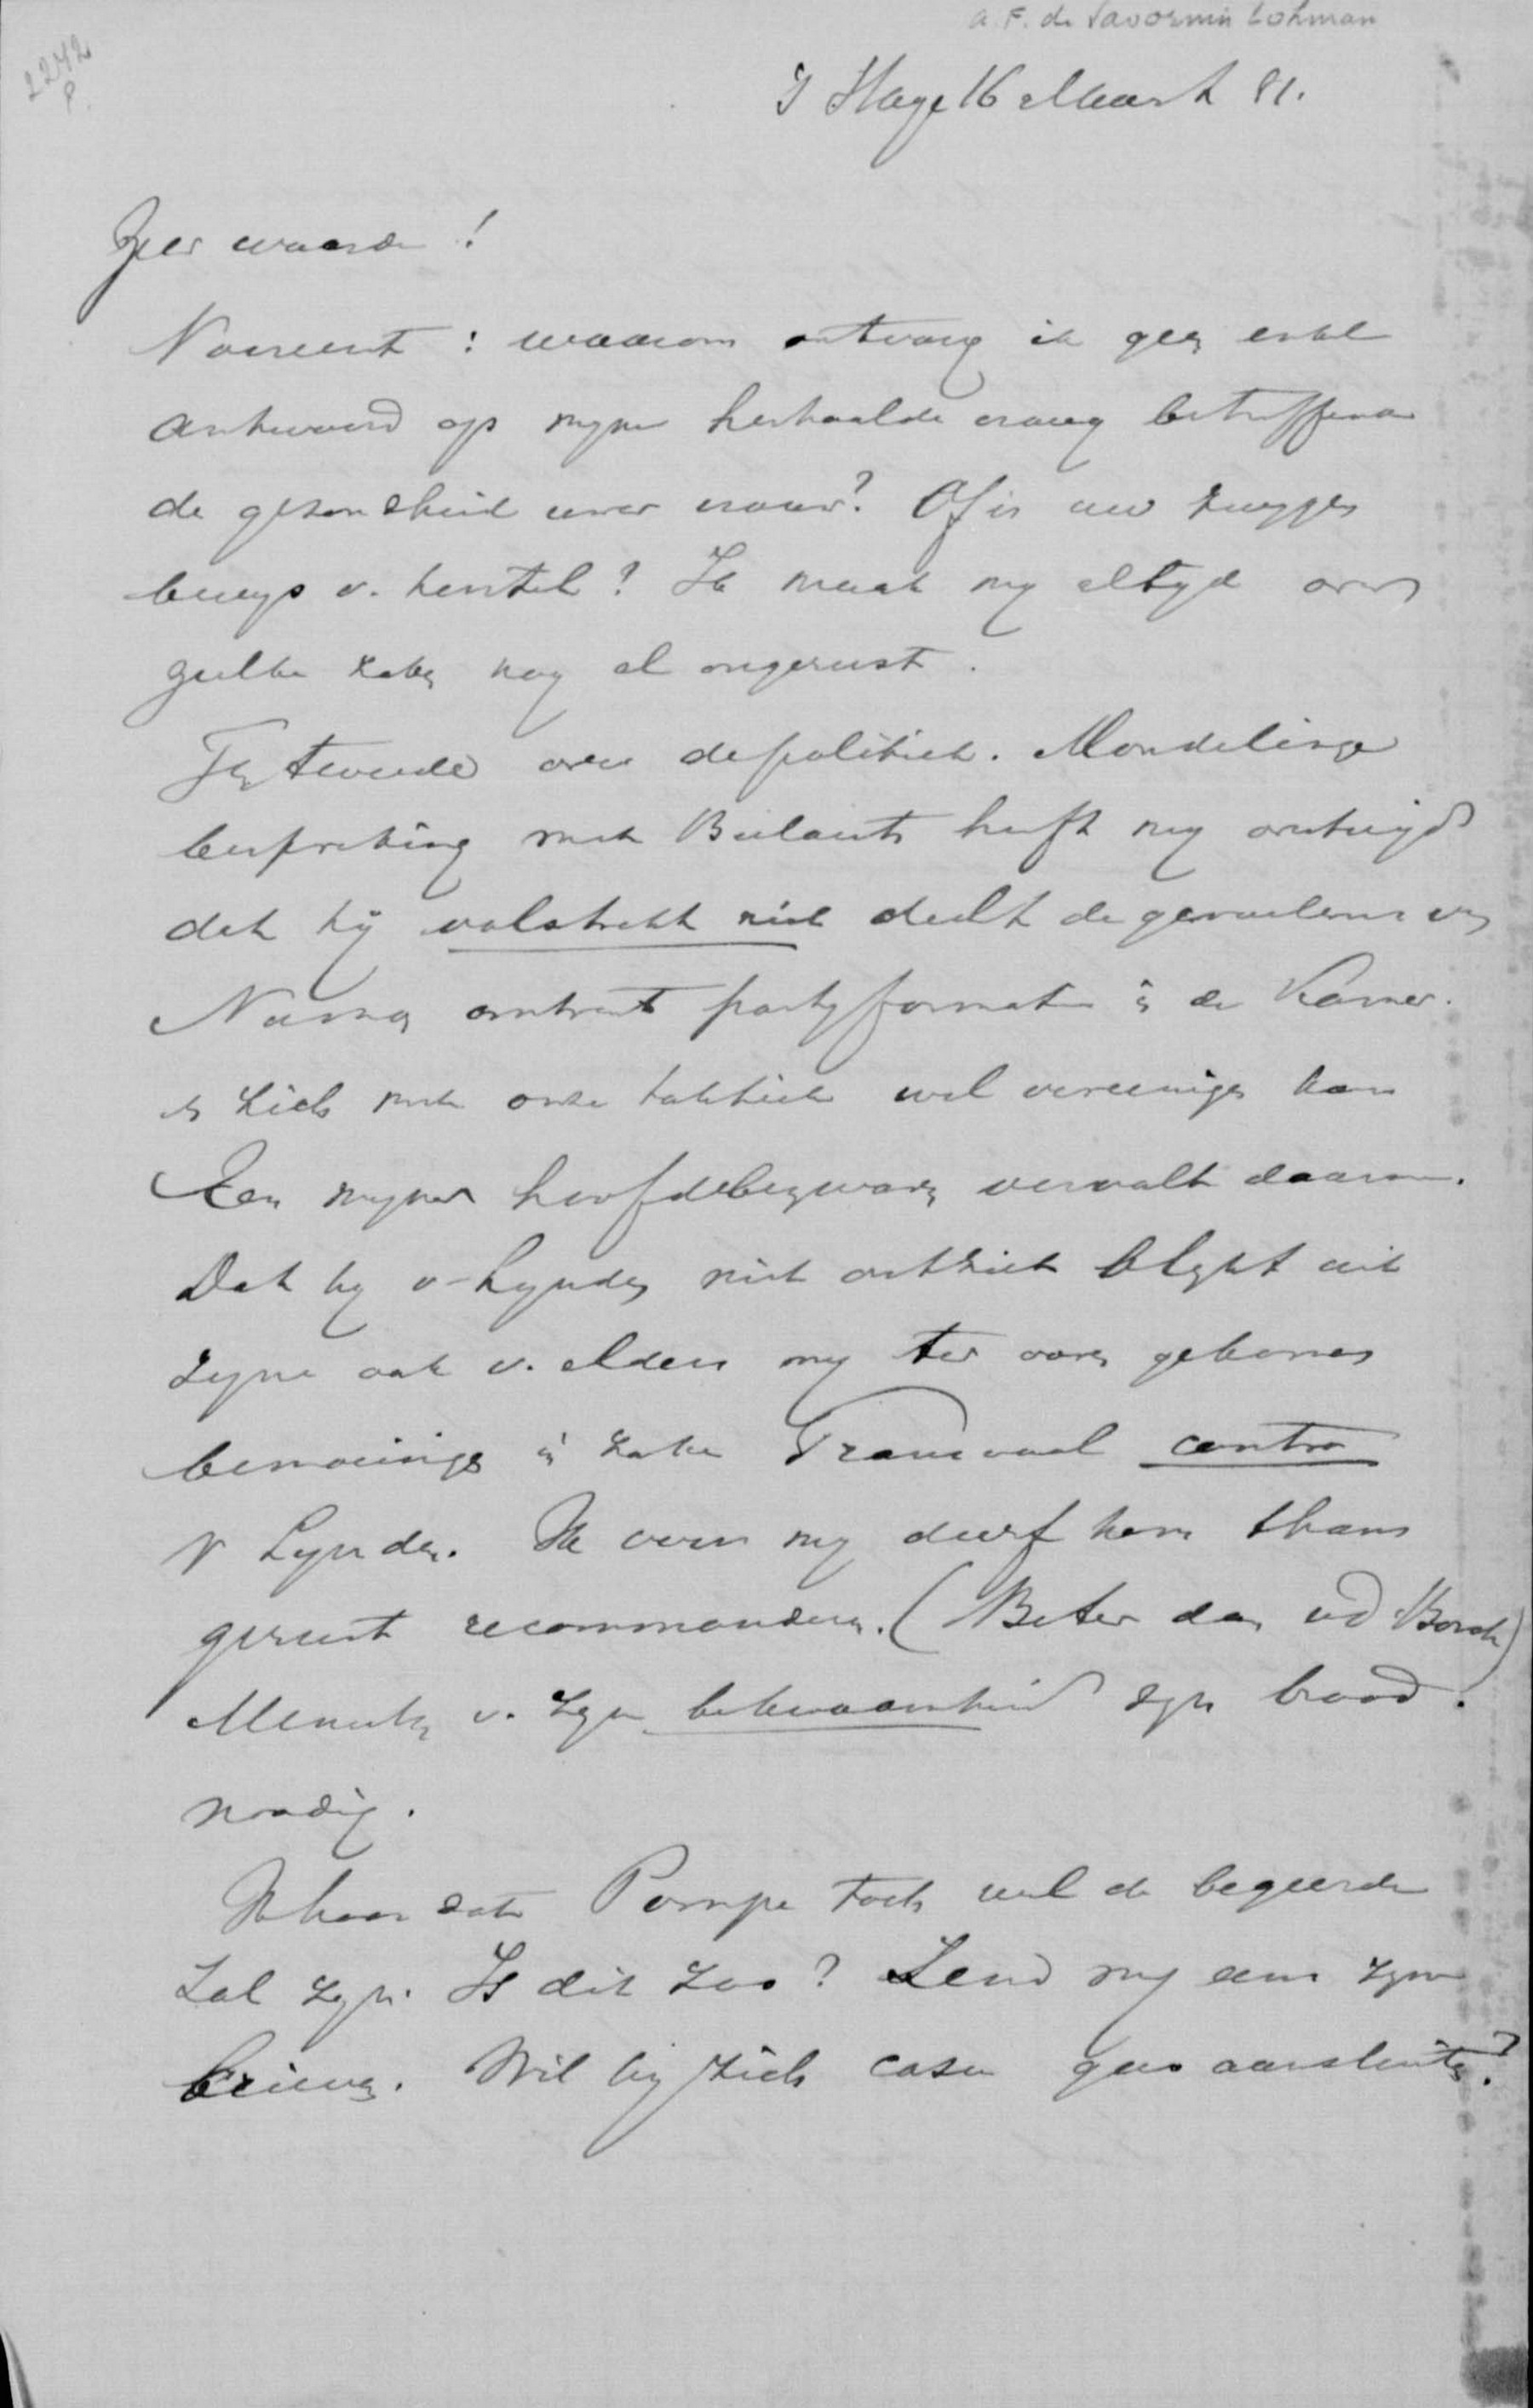 A. F. de Savornin Lohman
2242
P.
's Hage 16 Maart 81.
Zeer waarde!
Vooreerst: waarom ontvang ik geen enkel
antwoord op myne herhaalde vraag betreffende
de gezondheid uwer vrouw? Of is uw zwygen
bewys v. herstel? Ik maak my altyd over
zulke zaken nog al ongerust.
Ten tweede over de politiek. Mondelinge
bespreking met Beelaerts heeft my overtuigd
dat hy volstrekt niet deelt de gevoelens van
omtrent partyformatie in de Kamer.
en zich met onze taktiek wel vereenigen kan
Een myner hoofdbezwaren vervalt daarom.
Dat hy v. Lynden niet ontziet blykt uit
zyne ook v. elders my ter oore gekomen
bemoeiingen in zake Transvaal contra
v Lynden. Ik voor my durf hem thans
gerust recommanderen. (Beter dan vd Borch)
Menschen v. zyn bekwaamheid zyn brood
noodig.
Ik hoor dat Pompe toch wel de begeerde
zal zyn. Is dit zoo? Zend my eens zyne
brieven. Wil hy zich casu quo aansluiten?